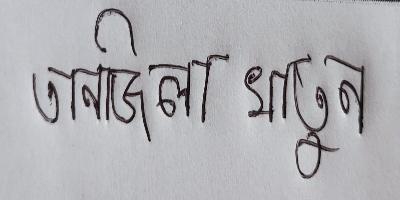 তানজিলা খাতুন